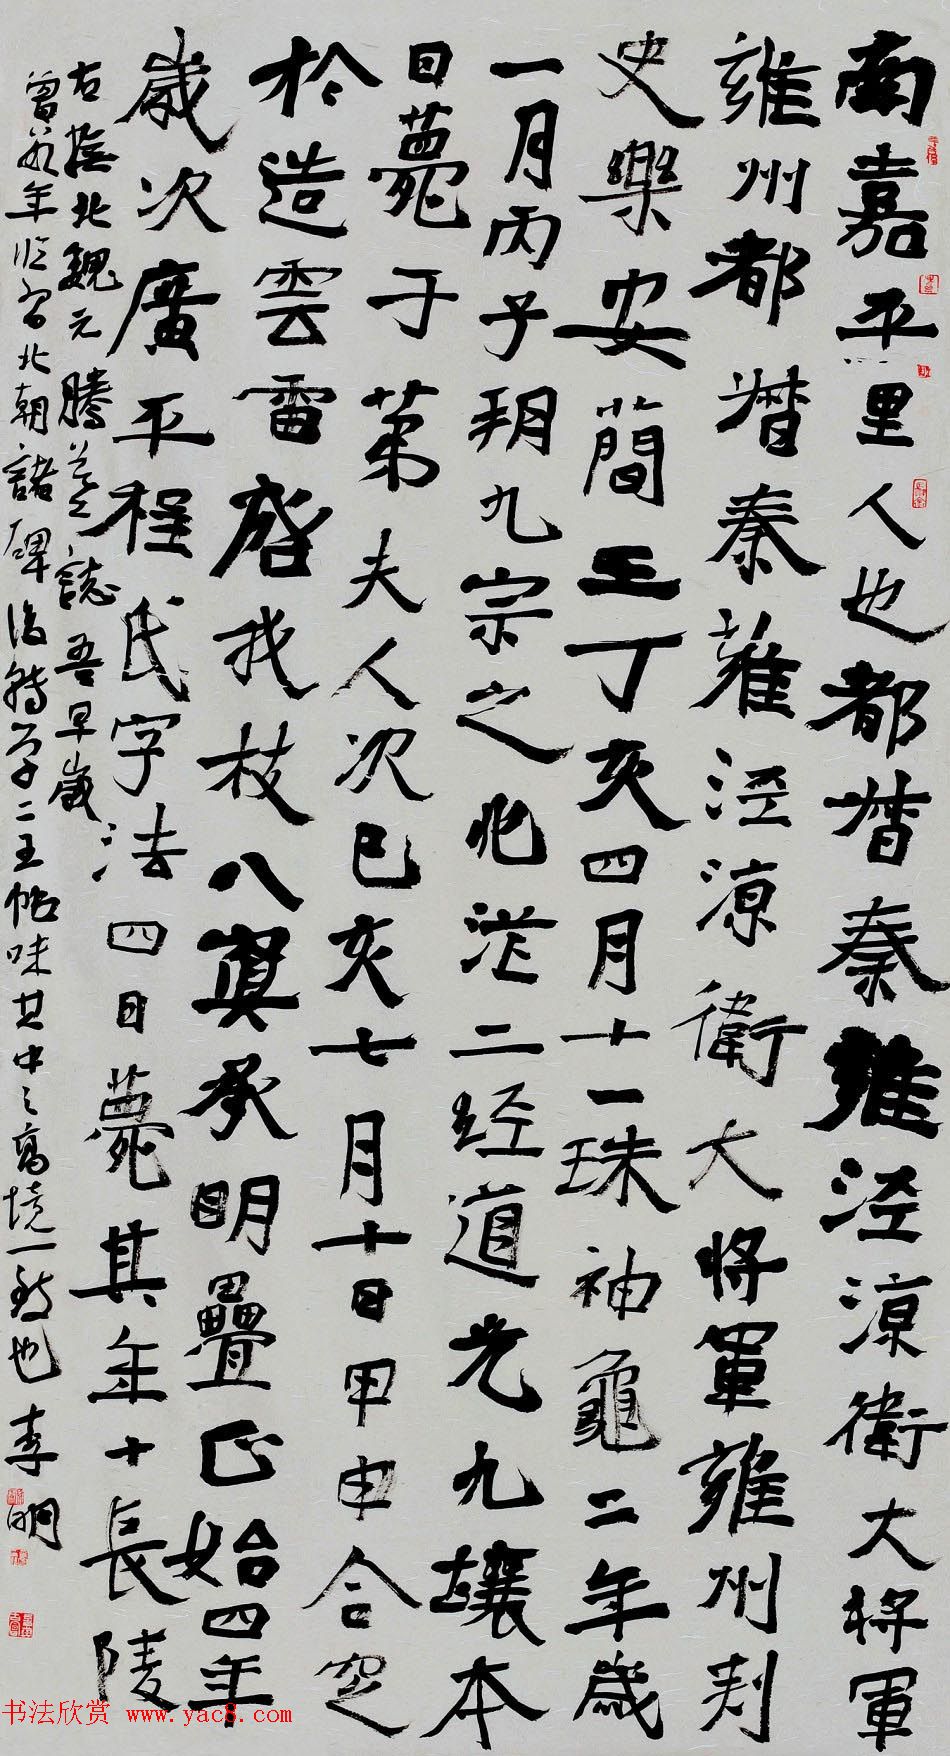 南嘉平里人也都督秦雍泾凉衛大將軍
雍州都督秦雍泾凉衛大將軍雍州刺
史樂安簡王丁亥四月十一珠神龜二年歲
一月丙子朔九宗之兆茫二经道光九壤本
日薨于第夫人次已亥七月十日甲申合窆
於造雲雷啓我枝八寘承明疊正始四年
歲次廣平程氏字法四日薨其年十長陵
右臨北魏元騰墓誌吾早歲
曾數年臨習北朝諸碑後轉學二王帖味其中之高境一致也 李明
书法欣赏 www.yac8.com